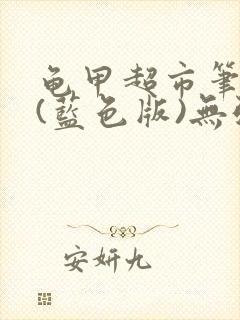 龟甲超市筆
(藍色版)無
安妍九